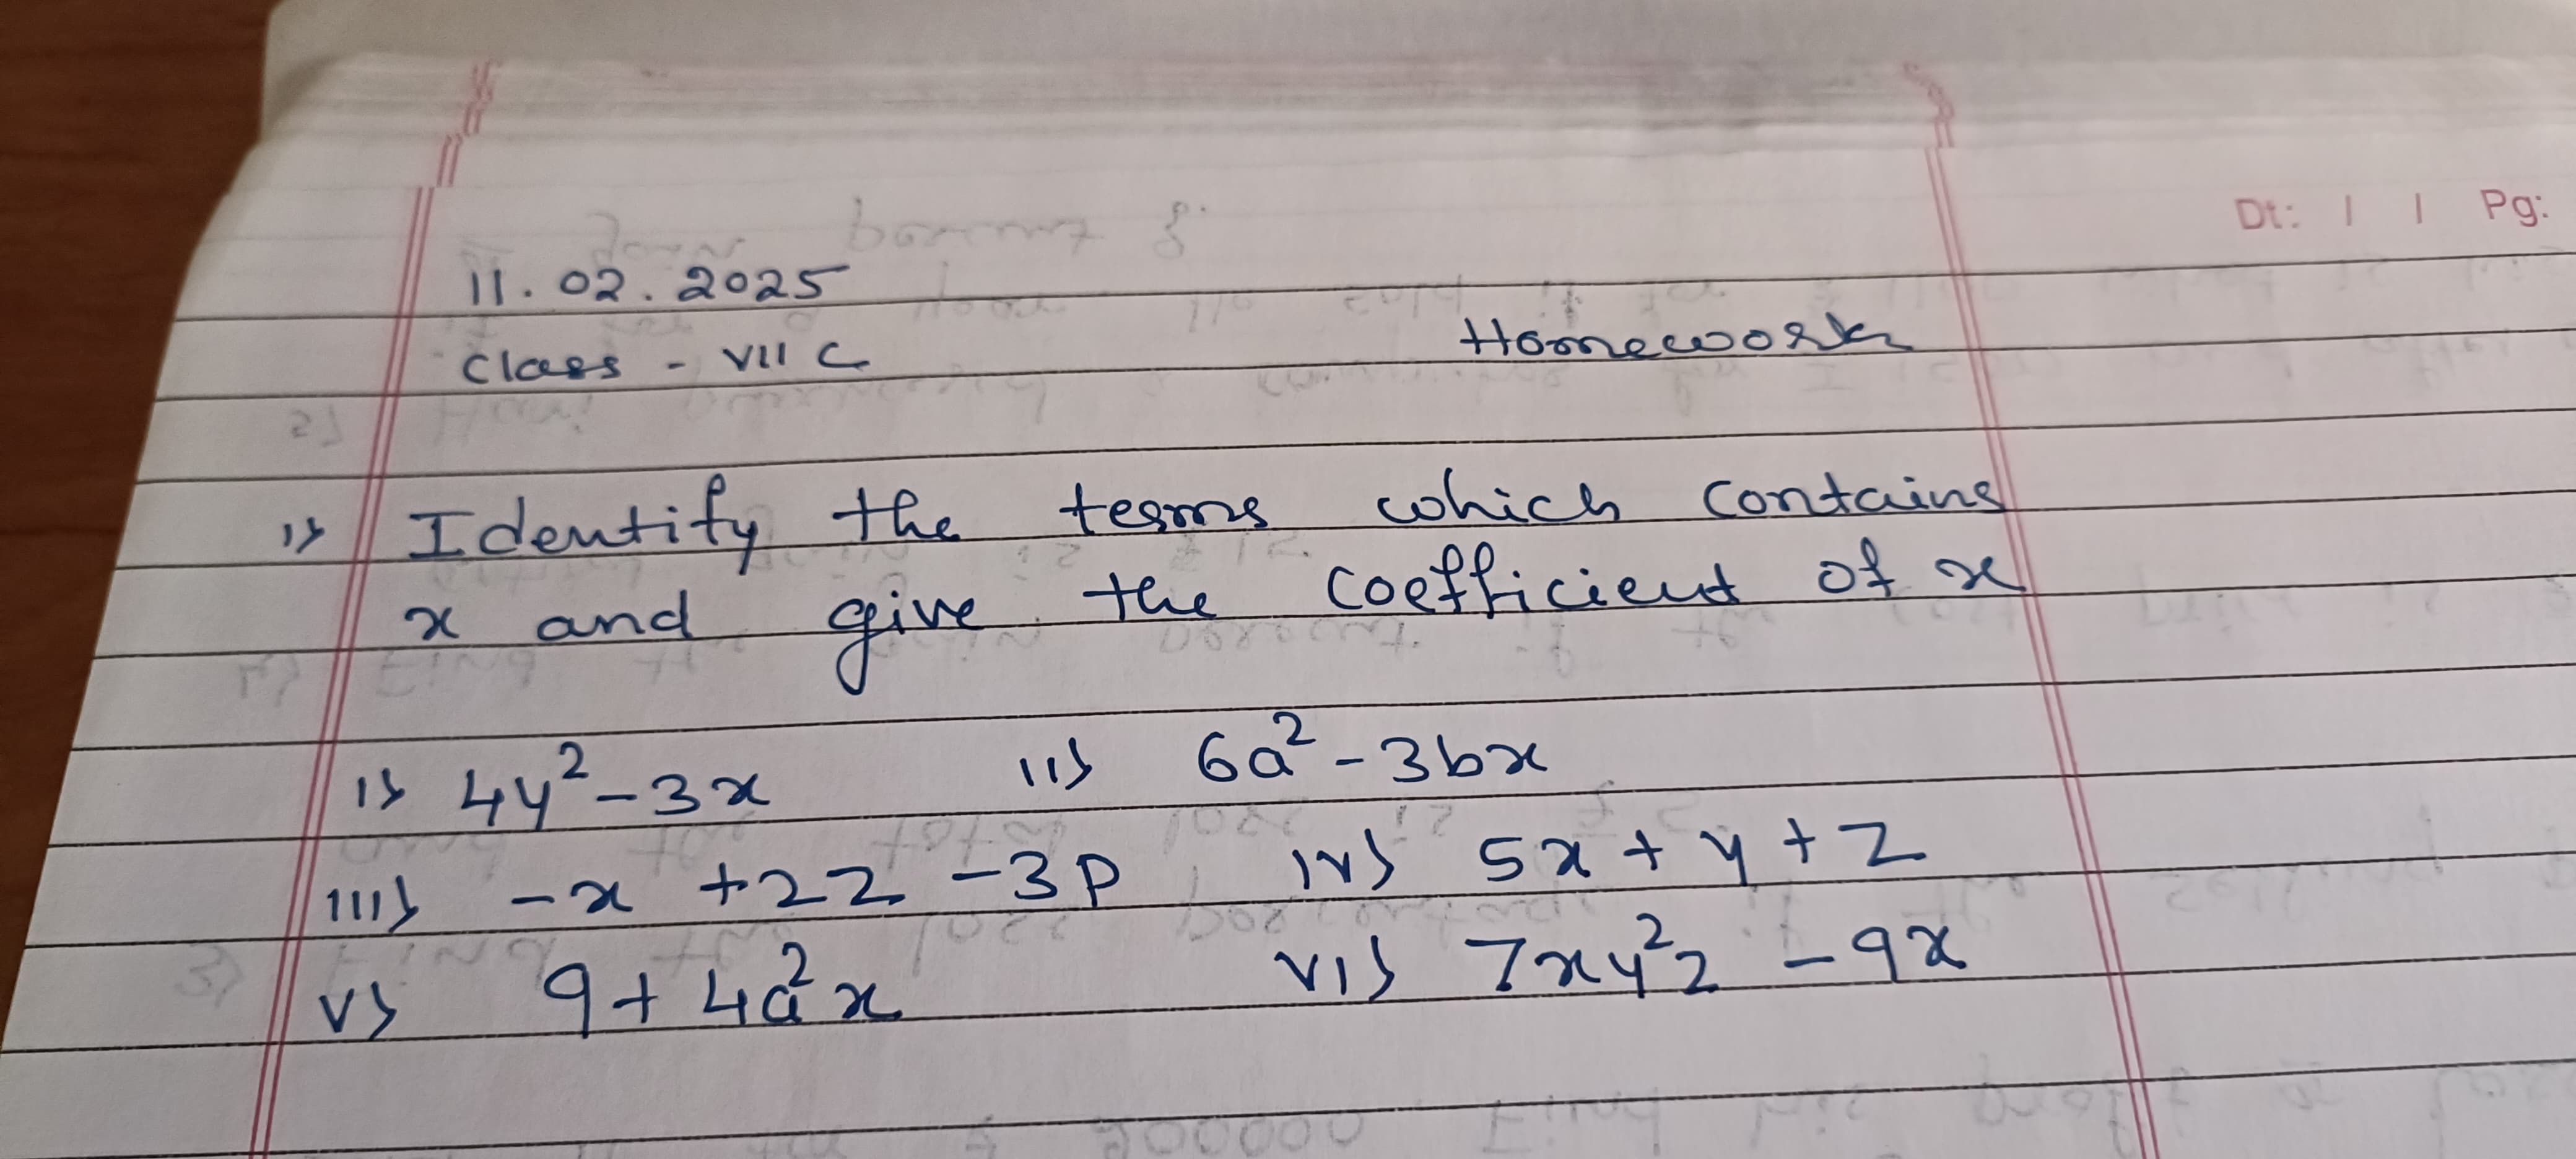 Dt: / / Pg:
11.02.2025
Class - VII C Homework
1) Identify the terms which contains
x and give the coefficient of x
i) 4y² - 3x ii) 6a² - 3bx
iii) -x + 2z - 3p iv) 5x + y + z
v) 9 + 4a²x vi) 7xy²z - 9x